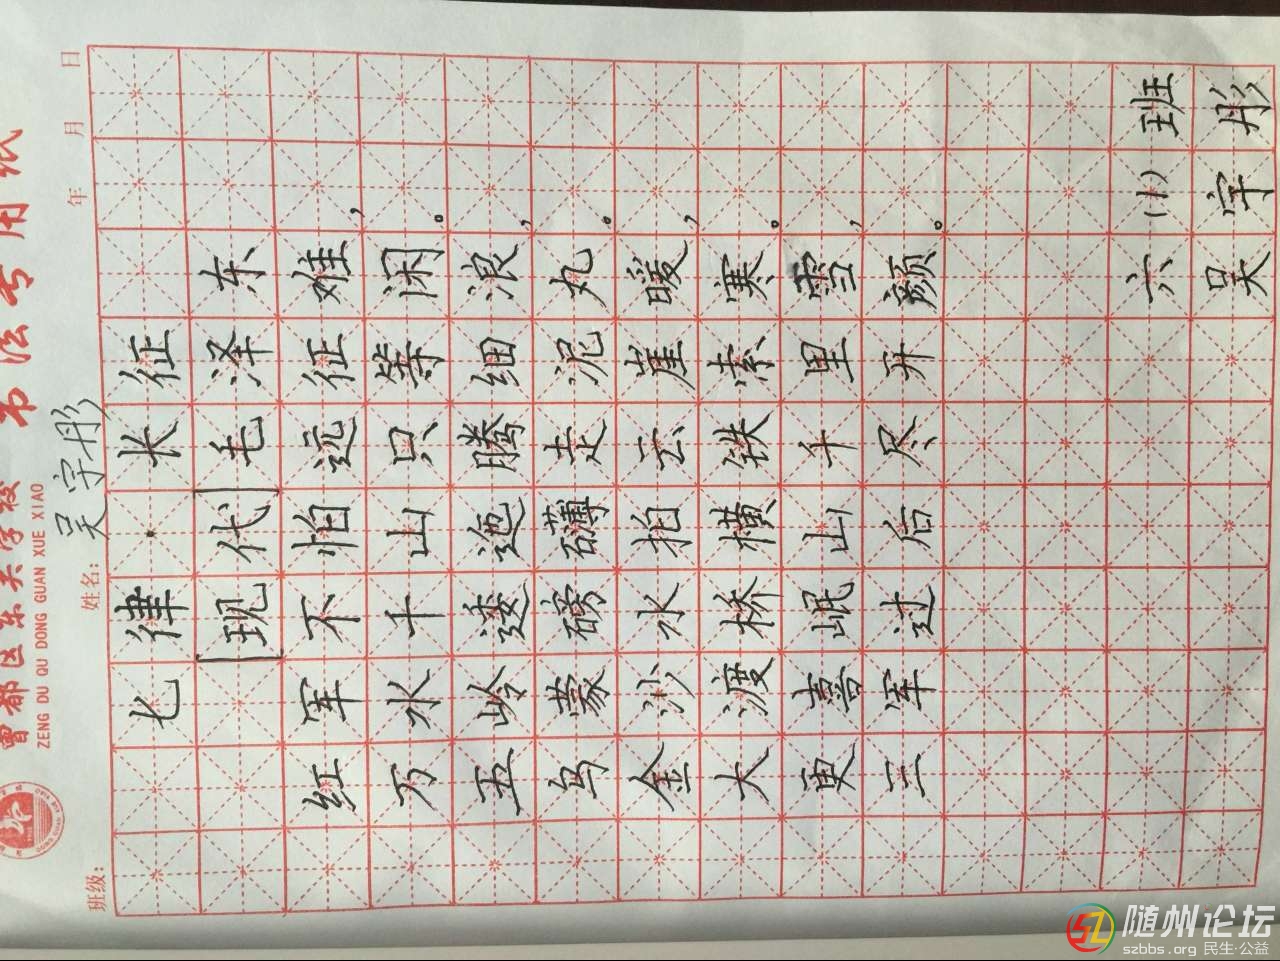 曾都区东关学校 书法专用纸
ZENG DU QU DONG GUAN XUE XIAO
班级: 姓名: 吴宇彤 年 月 日
七律·长征
[现代]毛泽东
红军不怕远征难,
万水千山只等闲。
五岭逶迤腾细浪,
乌蒙磅礴走泥丸。
金沙水拍云崖暖,
大渡桥横铁索寒。
更喜岷山千里雪,
三军过后尽开颜。
六(1)班
吴宇彤
随州论坛
szbbs.org 民生·公益